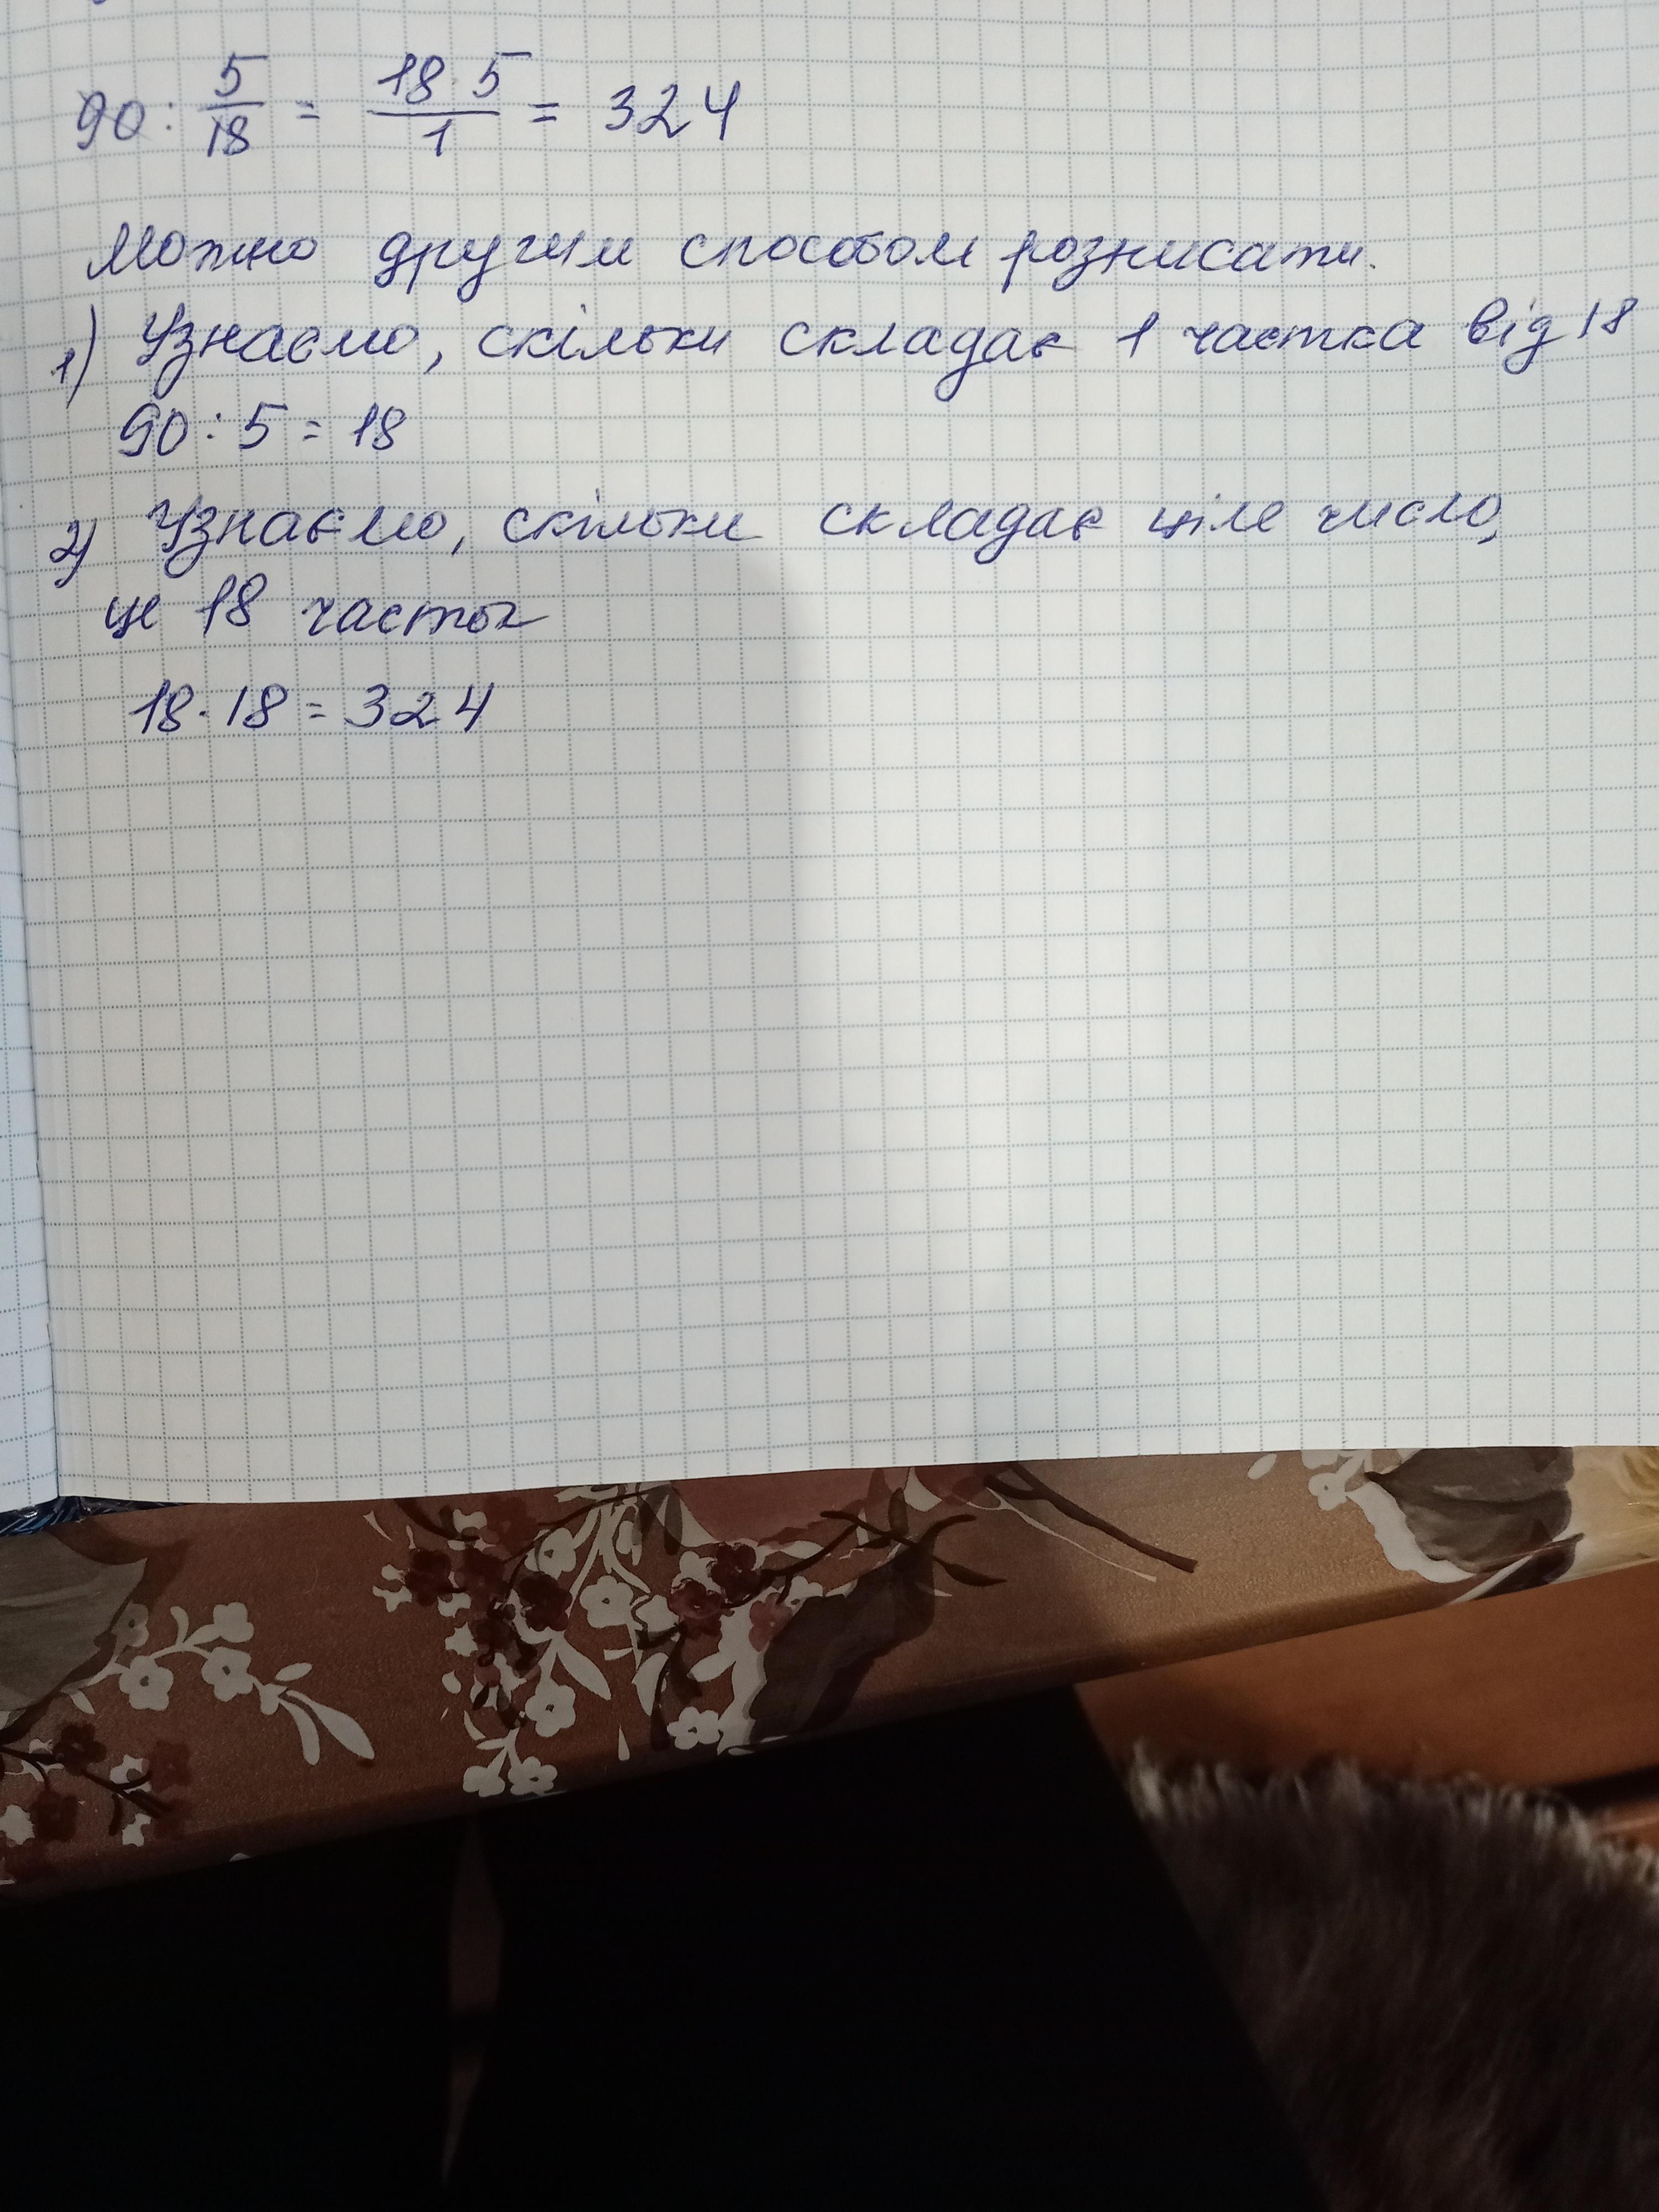 90 : 5/18 = 18 · 5/1 = 324
Можно другим способом розписати.
1) Узнаємо, скільки складає 1 частка від 18
90 : 5 = 18
2) Узнаємо, скільки складає ціле число,
це 18 часток
18 · 18 = 324